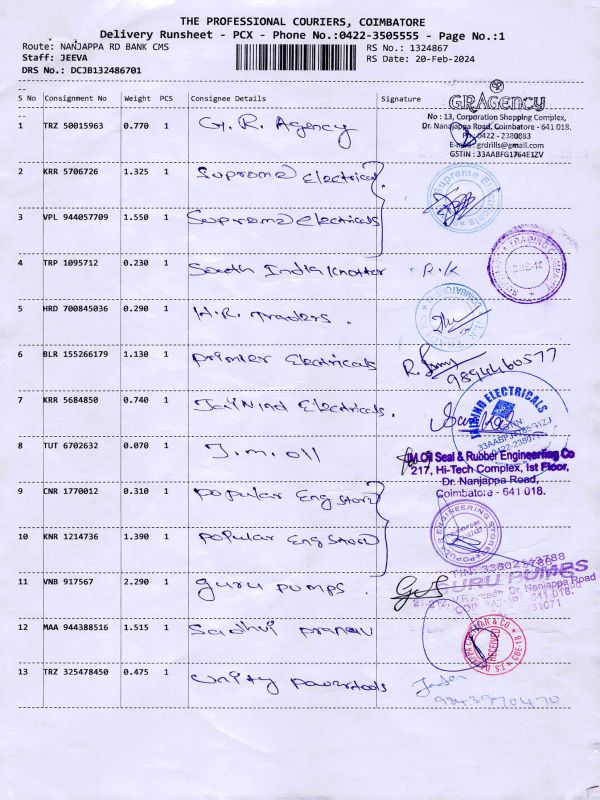 THE PROFESSIONAL COURIERS, COIMBATORE
Delivery Runsheet - PCX - Phone No.:0422-3505555 - Page No.:1
Route: NANJAPPA RD BANK CMS
RS No.: 1324867
Staff: JEEVA
RS Date: 20-Feb-2024
DRS No.: DCJB132486701
S No Consignment No Weight PCS Consignee Details Signature
GR AGENCY
No : 13, Corporation Shopping Complex,
Dr. Nanjappa Road, Coimbatore - 641 018.
0422 - 2380883
E-mail : grdrills@gmail.com
GSTIN : 33AABFG1764E1ZV
1 TRZ 50015963 0.770 1 G. R. Agency
2 KRR 5706726 1.325 1 Supreme Electrical
Supreme Electricals
3 VPL 944057709 1.550 1 Supreme Electricals
4 TRP 1095712 0.230 1 South India Knotter R.K
TRADING COMPANY
5 HRD 700845036 0.290 1 H.R. Traders.
6 BLR 155266179 1.130 1 Primier Electricals
9894460577
7 KRR 5684850 0.740 1 Jai Nind Electricals.
JAIHIND ELECTRICALS
8 TUT 6702632 0.070 1 J.m. oll
JM.Oil Seal & Rubber Engineering Co
217, Hi-Tech Complex, Ist Floor,
Dr. Nanjappa Road,
Coimbatore - 641 018.
9 CNR 1770012 0.310 1 Popular Eng Store
POPULAR ENGINEERING STORES
10 KNR 1214736 1.390 1 Popular Eng Store
11 VNB 917567 2.290 1 Guru pumps.
GURU PUMPS
Dr. Nanjappa Road
12 MAA 944388516 1.515 1 Sadhvi Pranav
RECEIVED
13 TRZ 325478450 0.475 1 Unity Powertools
9843970470